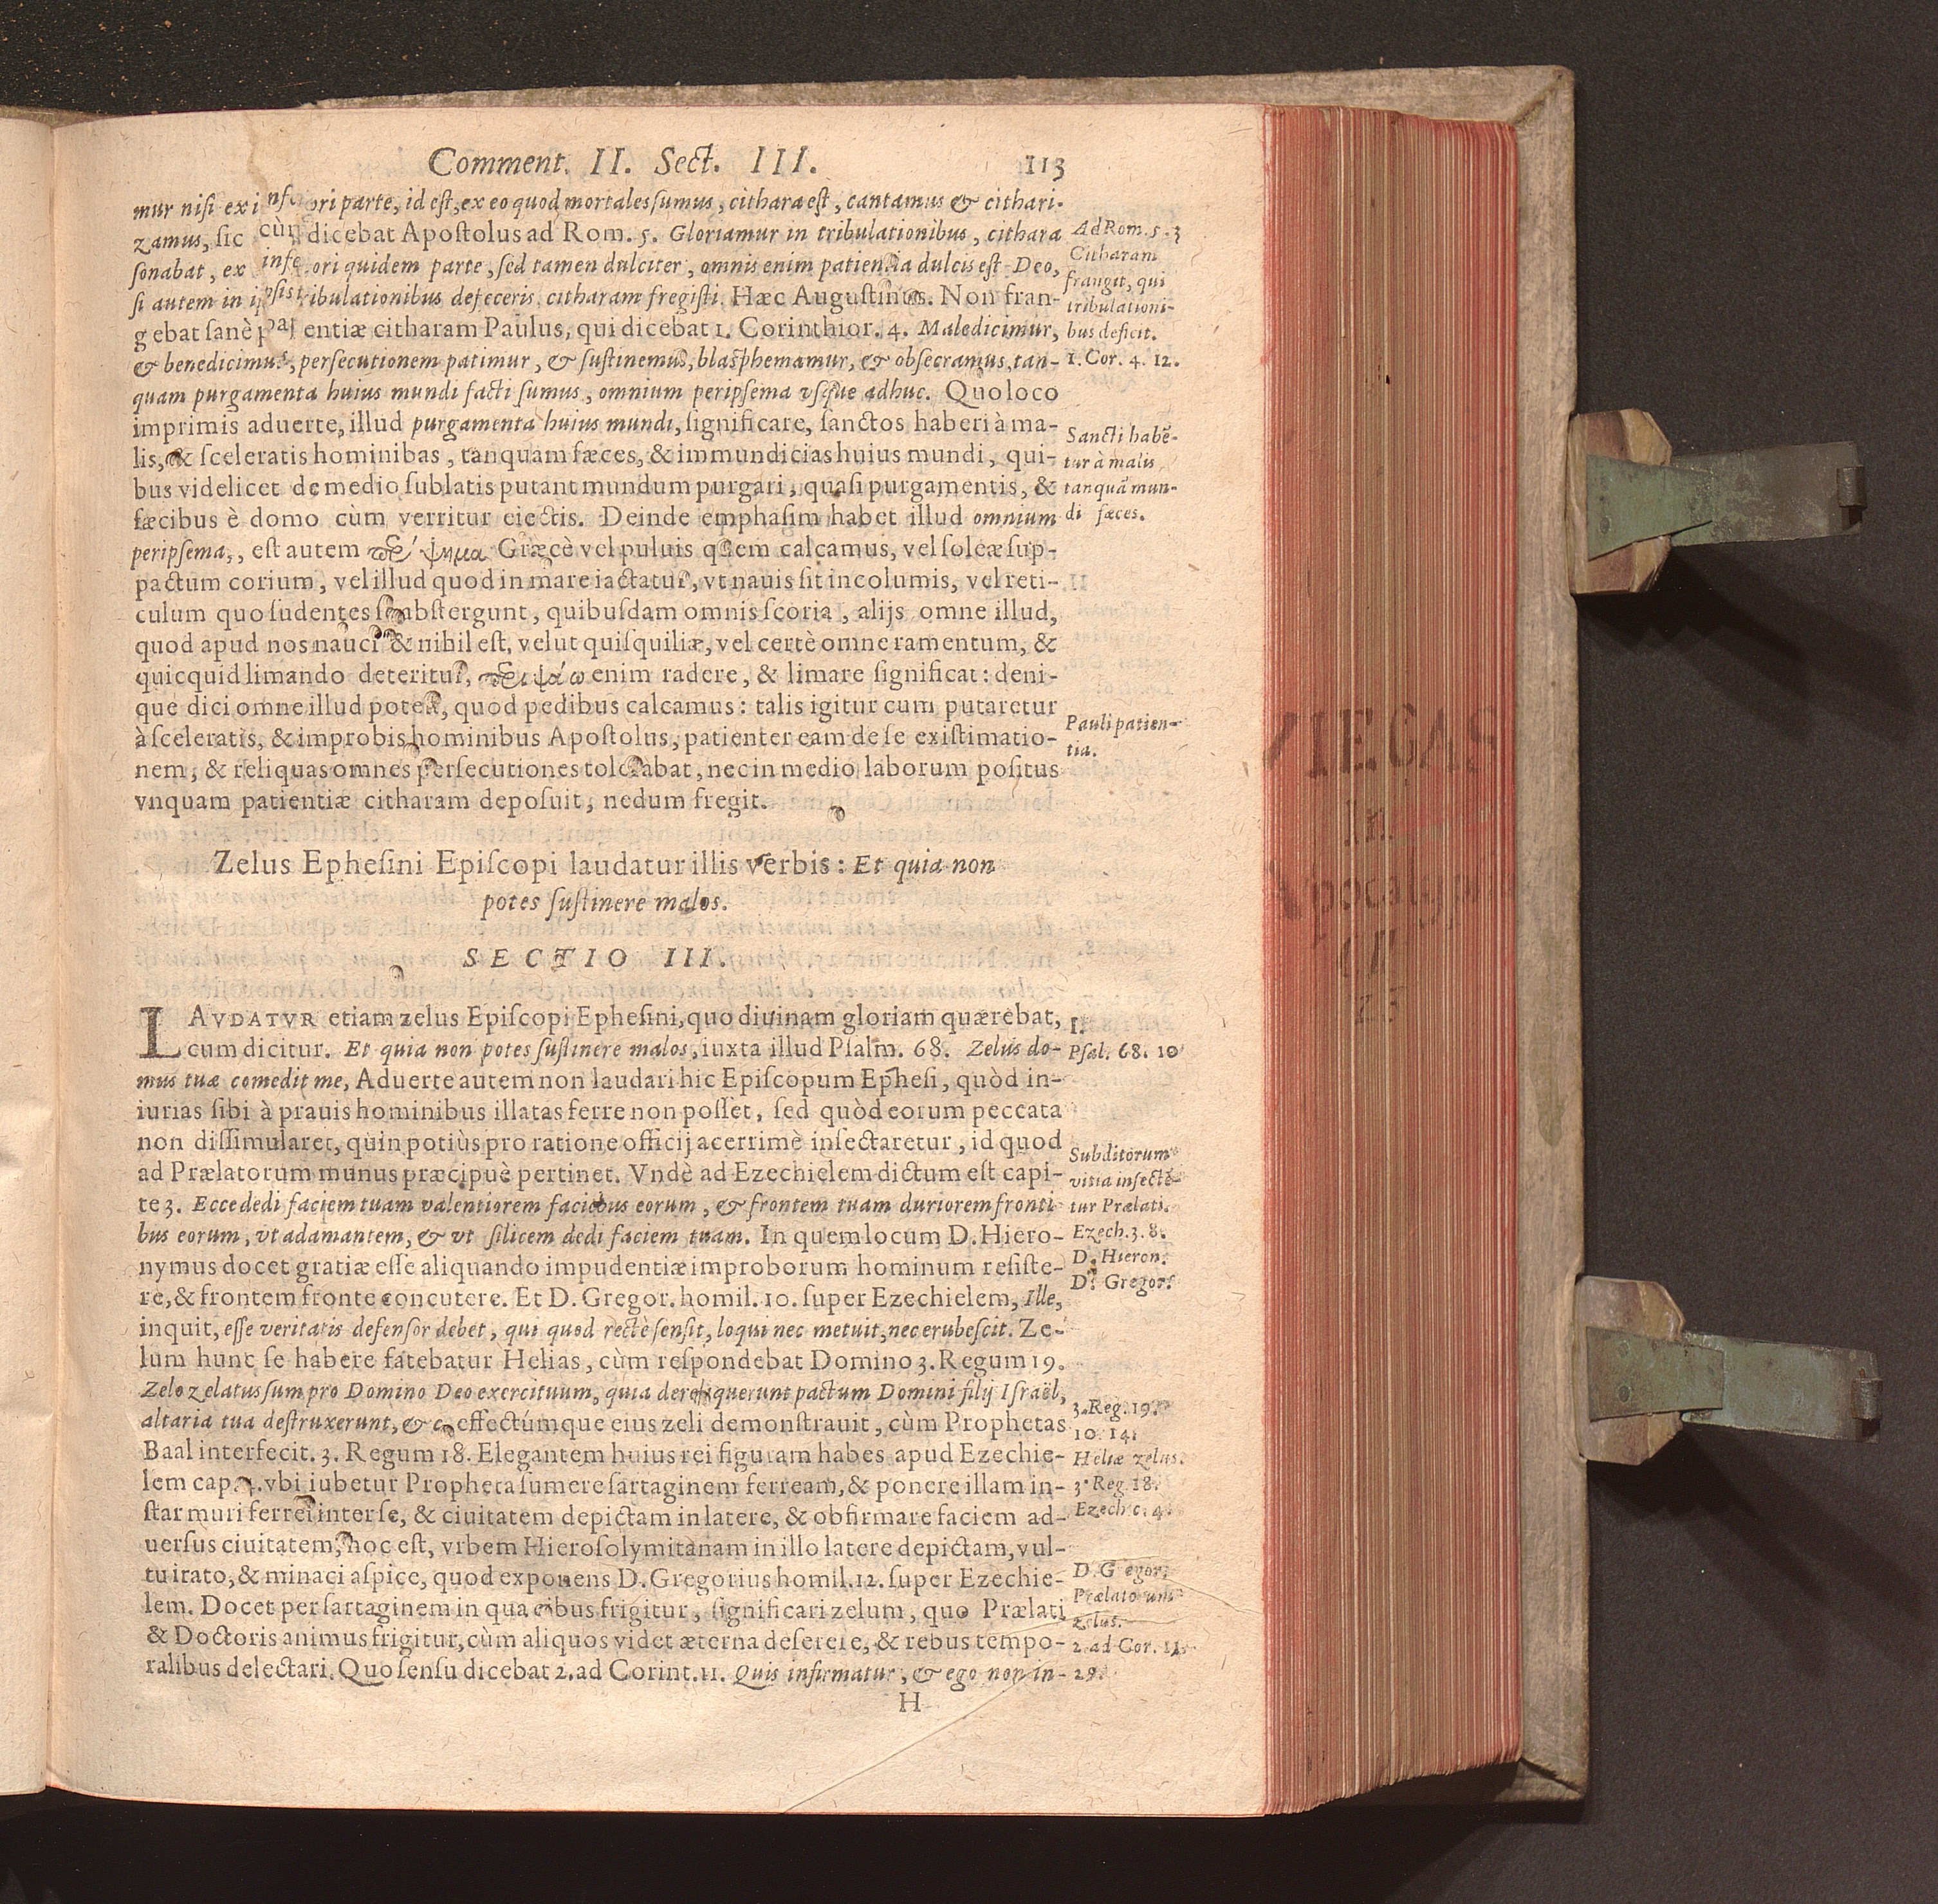 Comment. II. Sect. III. 113
mur nisi ex inferiori parte, id est, ex eo quod mortales sumus, cithara est, cantamus & cithari-
zamus, sic cùm dicebat Apostolus ad Rom. 5. Gloriamur in tribulationibus, cithara
sonabat, ex inferiori quidem parte, sed tamen dulciter, omnis enim patientia dulcis est Deo,
si autem in ipsis tribulationibus defeceris, citharam fregisti. Hæc Augustinus. Non fran-
gebat sanè patientiæ citharam Paulus, qui dicebat 1. Corinthior. 4. Maledicimur,
& benedicimus, persecutionem patimur, & sustinemus, blasphemamur, & obsecramus, tan-
quam purgamenta huius mundi facti sumus, omnium peripsema vsque adhuc. Quo loco
imprimis aduerte, illud purgamenta huius mundi, significare, sanctos haberi à ma-
lis, & sceleratis hominibas, tanquam fæces, & immundicias huius mundi, qui-
bus videlicet de medio sublatis putant mundum purgari, quasi purgamentis, &
fæcibus è domo cùm verritur eiectis. Deinde emphasim habet illud omnium
peripsema, est autem περίψημα Græcè vel puluis quem calcamus, vel soleæ sup-
pactum corium, vel illud quod in mare iactatur, vt nauis sit incolumis, vel reti-
culum quo sudentes se abstergunt, quibusdam omnis scoria, alijs omne illud,
quod apud nos nauci & nihil est, velut quisquiliæ, vel certè omne ramentum, &
quicquid limando deteritur, περιψάω enim radere, & limare significat: deni-
que dici omne illud potest, quod pedibus calcamus: talis igitur cum putaretur
à sceleratis, & improbis hominibus Apostolus, patienter eam de se existimatio-
nem, & reliquas omnes persecutiones tolerabat, nec in medio laborum positus
vnquam patientiæ citharam deposuit, nedum fregit.
Ad Rom. 5. 3
Citharam
frangit, qui
tribulationi-
bus deficit.
1. Cor. 4. 12.
Sancti habẽ-
tur à malis
tanquã mun-
di fæces.
Pauli patien-
tia.
Zelus Ephesini Episcopi laudatur illis verbis: Et quia non
potes sustinere malos.
SECTIO III.
LAVDATVR etiam zelus Episcopi Ephesini, quo diuinam gloriam quærebat,
cum dicitur. Et quia non potes sustinere malos, iuxta illud Psalm. 68. Zelus do-
mus tuæ comedit me, Aduerte autem non laudari hic Episcopum Ephesi, quòd in-
iurias sibi à prauis hominibus illatas ferre non posset, sed quòd eorum peccata
non dissimularet, quin potiùs pro ratione officij acerrimè insectaretur, id quod
ad Prælatorum munus præcipuè pertinet. Vndè ad Ezechielem dictum est capi-
te 3. Ecce dedi faciem tuam valentiorem faciebus eorum, & frontem tuam duriorem fronti
bus eorum, vt adamantem, & vt silicem dedi faciem tuam. In quem locum D. Hiero-
nymus docet gratiæ esse aliquando impudentiæ improborum hominum resiste-
re, & frontem fronte concutere. Et D. Gregor. homil. 10. super Ezechielem, Ille,
inquit, esse veritatis defensor debet, qui quod rectè sensit, loqui nec metuit, nec erubescit. Ze-
lum hunc se habere fatebatur Helias, cùm respondebat Domino 3. Regum 19.
Zelo zelatus sum pro Domino Deo exercituum, quia dereliquerunt pactum Domini filij Israël,
altaria tua destruxerunt, & c. effectúmque eius zeli demonstrauit, cùm Prophetas
Baal interfecit. 3. Regum 18. Elegantem huius rei figuram habes apud Ezechie-
lem cap. 4. vbi iubetur Propheta sumere sartaginem ferream, & ponere illam in-
star muri ferrei inter se, & ciuitatem depictam in latere, & obfirmare faciem ad-
uersus ciuitatem, hoc est, vrbem Hierosolymitanam in illo latere depictam, vul-
tu irato, & minaci aspice, quod exponens D. Gregorius homil. 12. super Ezechie-
lem. Docet per sartaginem in qua cibus frigitur, significari zelum, quo Prælati
& Doctoris animus frigitur, cùm aliquos videt æterna deserere, & rebus tempo-
ralibus delectari. Quo sensu dicebat 2. ad Corint. 11. Quis infirmatur, & ego non in-
I.
Psal. 68. 10
Subditorum
vitia insectẽ-
tur Prælati.
Ezech. 3. 8.
D. Hieron.
D. Gregor.
3. Reg. 19.
10. 14.
Heliæ zelus.
3. Reg. 18.
Ezech c. 4.
D. Gregor.
Prælatorum
zelus.
2. ad Cor. 11.
29.
H
VIEGAS
In
Apocalyp